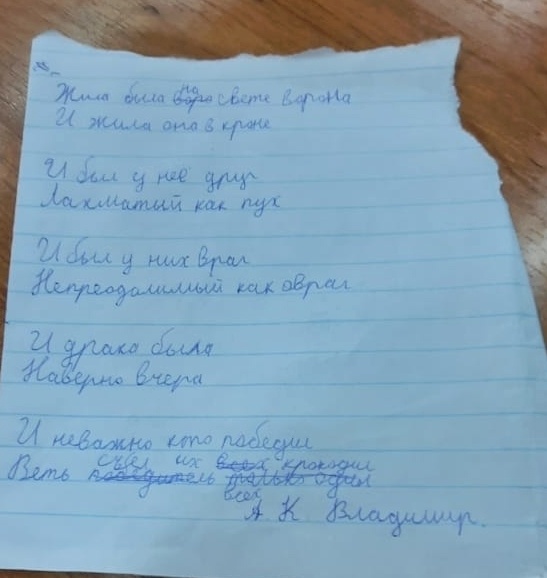 Жила была на свете ворона
И жила она в кроне
И был у неё друг
Лахматый как пух
И был у них враг
Непреодолимый как овраг
И драка была
Наверно вчера
И неважно кто победил
съел их всех крокодил
Веть победитель только один
всех
А К Владимир.